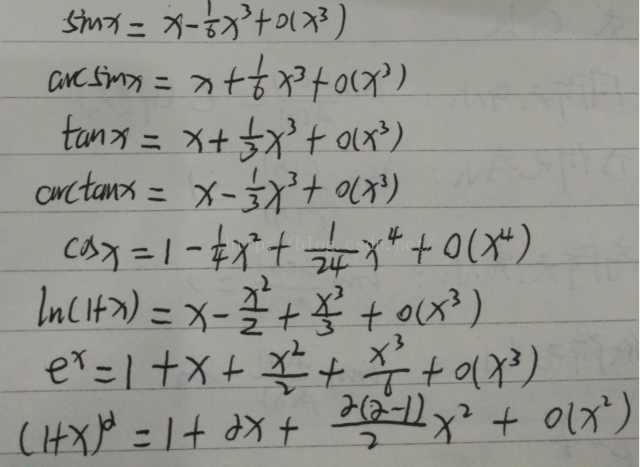 sinx = x - 1/6 x³ + o(x³)
arcsinx = x + 1/6 x³ + o(x³)
tanx = x + 1/3 x³ + o(x³)
arctanx = x - 1/3 x³ + o(x³)
cosx = 1 - 1/4 x² + 1/24 x⁴ + o(x⁴)
ln(1+x) = x - x²/2 + x³/3 + o(x³)
eˣ = 1 + x + x²/2 + x³/6 + o(x³)
(1+x)^α = 1 + αx + α(α-1)/2 x² + o(x²)